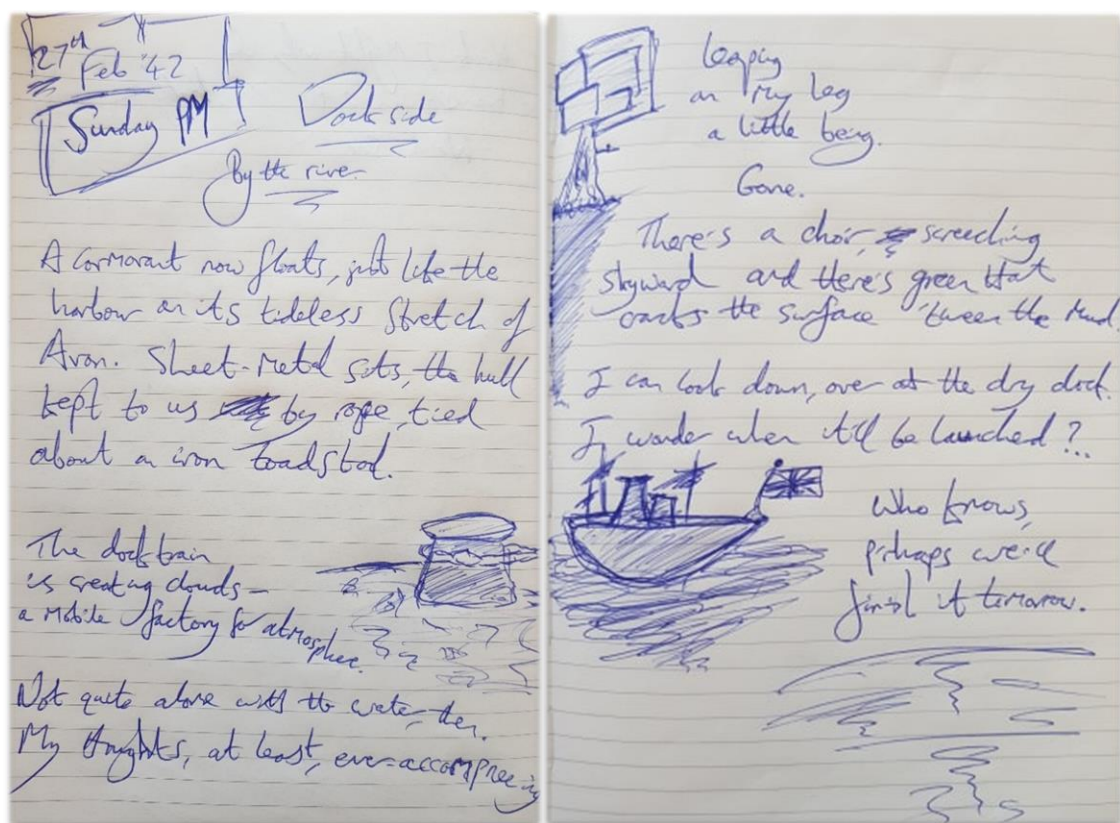 27th
Feb '42
Sunday PM
Dockside
By the river
A cormorant now floats, just like the
harbour on its tideless stretch of
Avon. Sheet-metal sits, the hull
kept to us by rope, tied
about an iron toadstool.
The dock train
is creating clouds –
a mobile factory for atmosphere.
Not quite alone with the water, then.
My thoughts, at least, ever-accompanying
leaping
on my leg
a little being.
Gone.
There's a choir, screeching
skyward and there's green that
cracks the surface 'tween the mud.
I can look down, over at the dry dock.
I wonder when it'll be launched?
Who knows,
perhaps we'll
finish it tomorrow.